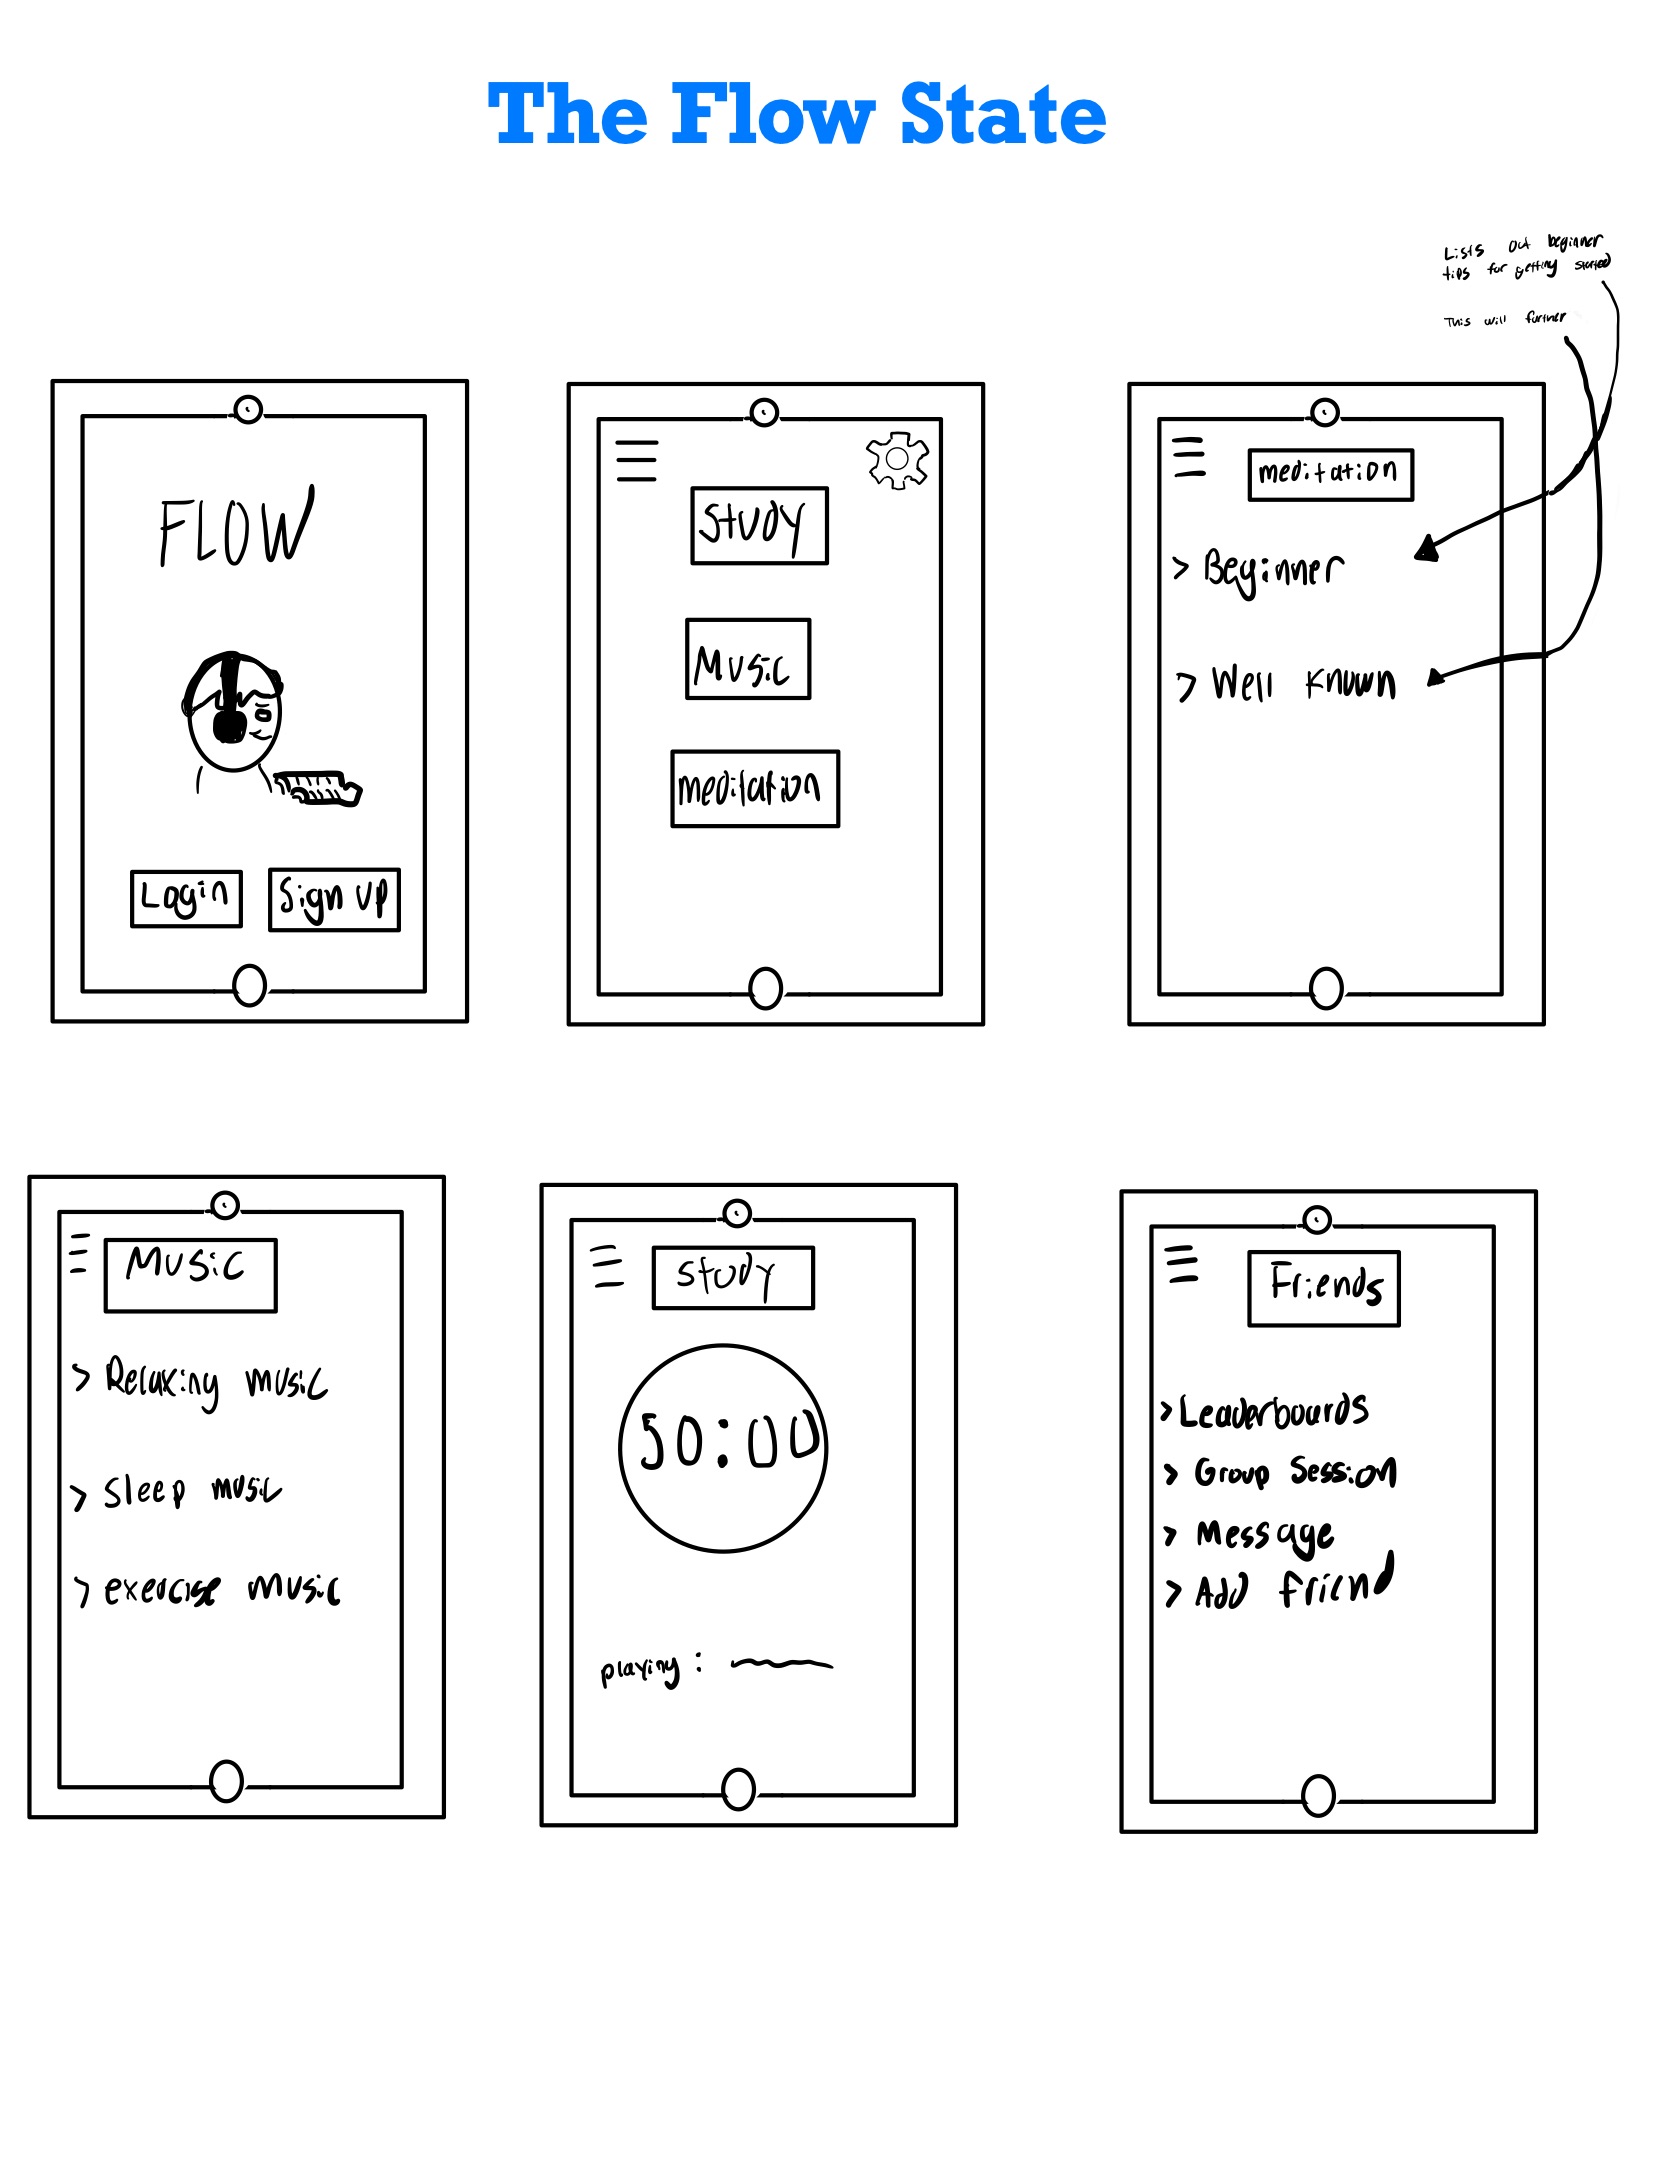 The Flow State
Lists out beginner
tips for getting started
This will further
FLOW
Login
Sign up
Study
Music
meditation
meditation
> Beginner
> Well known
Music
> Relaxing music
> Sleep music
> exercise music
Study
50:00
playing:
Friends
> Leaderboards
> Group Session
> Message
> Add friend